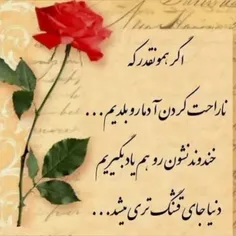 اگر همونقدر که
ناراحت کردن آدمارو بلدیم ...
خندوندنشون رو هم یاد بگیریم
دنیا جای قشنگ تری میشد ...